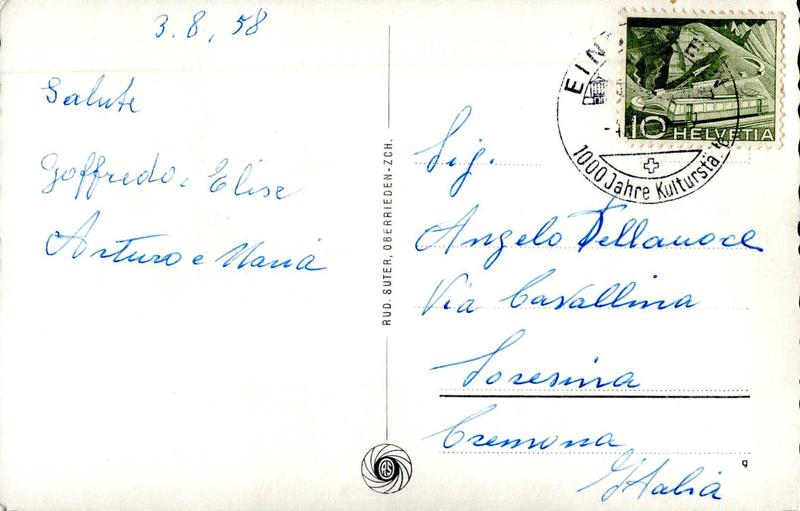 3.8,58
Salute
Goffredo e Elise
Arturo e Maria
RUD. SUTER, OBERRIEDEN-ZCH.
RS
EIN
1000 Jahre Kulturstä
10 HELVETIA
Sig.
Angelo Dellanoce
Via Cavallina
Soresina
Cremona
Italia
g